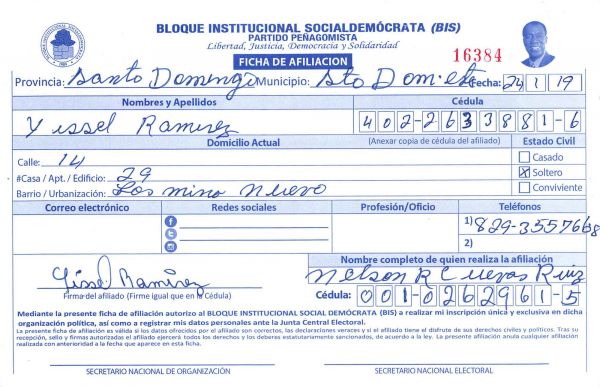 BLOQUE INSTITUCIONAL SOCIALDEMÓCRATA (BIS)
PARTIDO PEÑAGOMISTA
Libertad, Justicia, Democracia y Solidaridad
FICHA DE AFILIACION
16384
Provincia: Santo Domingo Municipio: Sto Dom. este Fecha: 24 1 19
Nombres y Apellidos Cédula
Yissel Ramirez 402-2633881-6
Domicilio Actual (Anexar copia de cédula del afiliado) Estado Civil
Calle: 14 Casado
#Casa / Apt. / Edificio: 29 X Soltero
Barrio / Urbanización: Los mina Nuevo Conviviente
Correo electrónico Redes sociales Profesión/Oficio Teléfonos
1) 829-3557668
2)
Nombre completo de quien realiza la afiliación
Yissel Ramirez Nelson R Cuevas Ruiz
Firma del afiliado (Firme igual que en la Cédula) Cédula: 001-0262961-5
Mediante la presente ficha de afiliación autorizo al BLOQUE INSTITUCIONAL SOCIAL DEMÓCRATA (BIS) a realizar mi inscripción única y exclusiva en dicha
organización política, así como a registrar mis datos personales ante la Junta Central Electoral.
La presente ficha de afiliación es válida si los datos ofrecidos por el afiliado son correctos, las declaraciones veraces y si el afiliado tiene el disfrute de sus derechos civiles y políticos. Tras su
recepción, sello y firmas autorizadas el afiliado ejercerá todos los derechos y los deberes estatutariamente sancionados, de acuerdo a la ley. La presente afiliación anula cualquier afiliación
realizada con anterioridad a la fecha que aparece en esta ficha.
SECRETARIO NACIONAL DE ORGANIZACIÓN SECRETARIO NACIONAL ELECTORAL